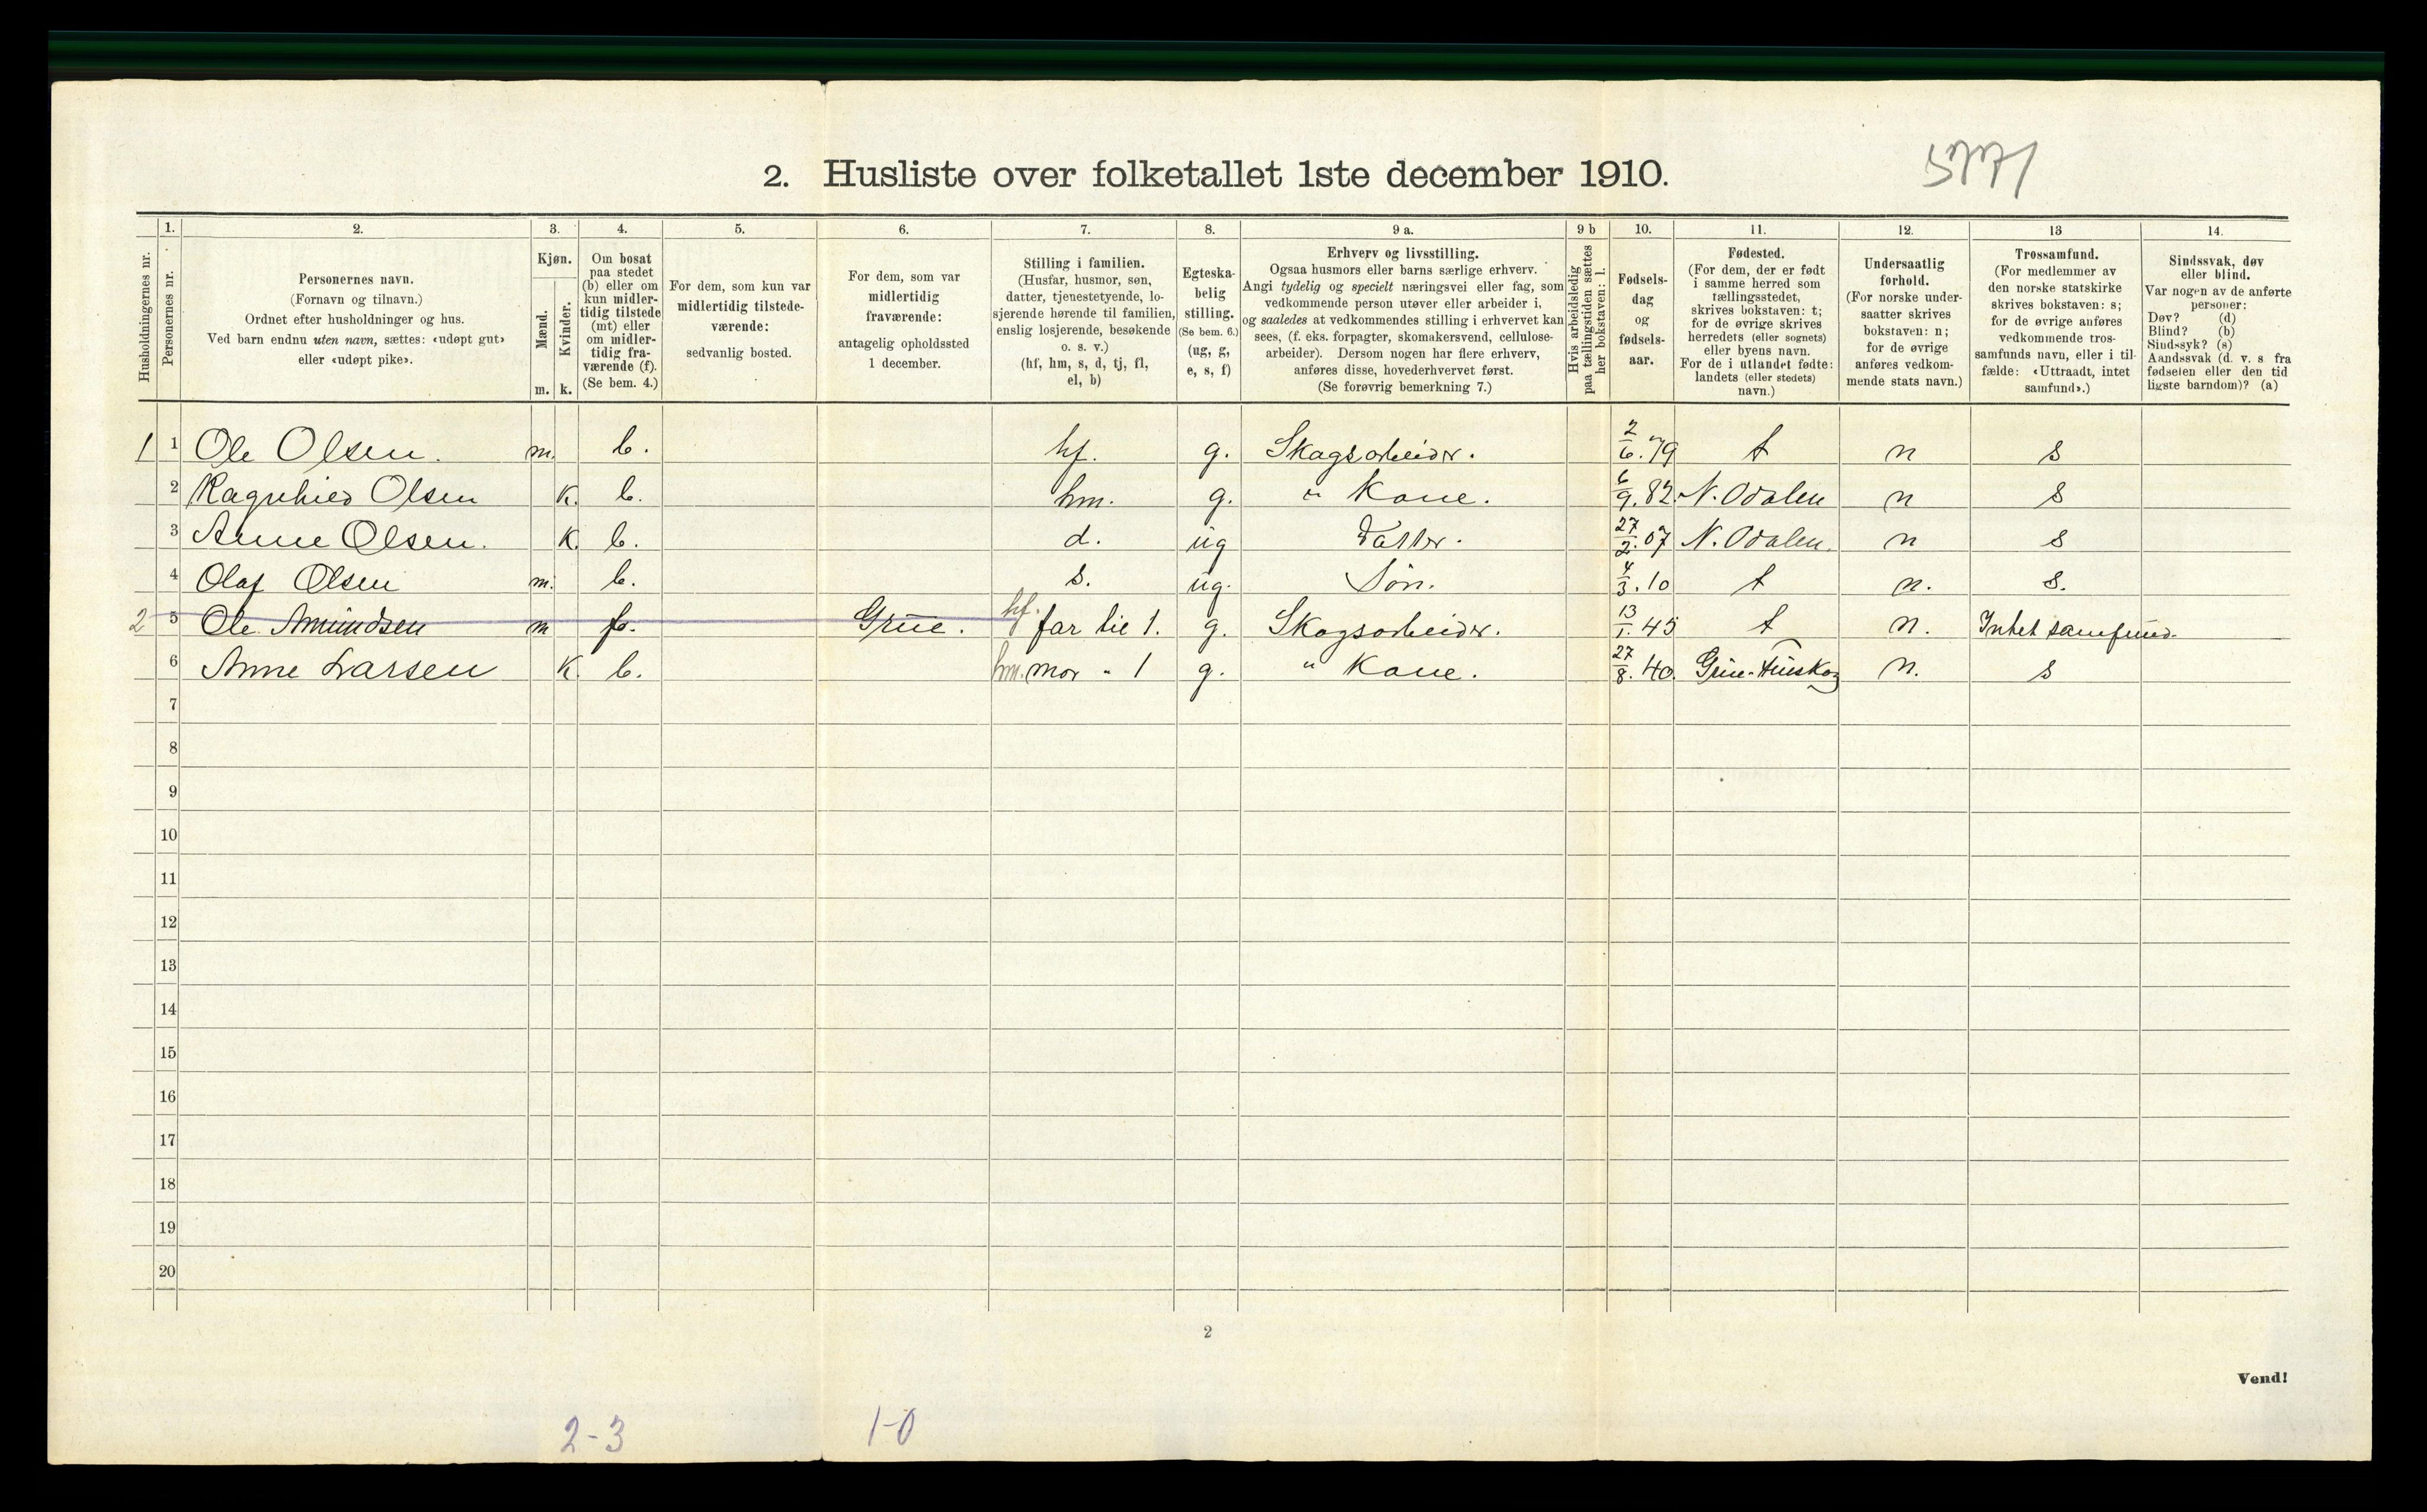 2. Husliste over folketallet 1ste december 1910.
5771
1. 2. 3. 4. 5. 6. 7. 8. 9 a. 9 b 10. 11. 12. 13 14.
Husholdningernes nr.
Personernes nr.
Personernes navn.
(Fornavn og tilnavn.)
Ordnet efter husholdninger og hus.
Ved barn endnu uten navn, sættes: «udøpt gut»
eller «udøpt pike».
Kjøn.
Mænd.
Kvinder.
m. k.
Om bosat
paa stedet
(b) eller om
kun midler-
tidig tilstede
(mt) eller
om midler-
tidig fra-
værende (f).
(Se bem. 4.)
For dem, som kun var
midlertidig tilstede-
værende:
sedvanlig bosted.
For dem, som var
midlertidig
fraværende:
antagelig opholdssted
1 december.
Stilling i familien.
(Husfar, husmor, søn,
datter, tjenestetyende, lo-
sjerende hørende til familien,
enslig losjerende, besøkende
o. s. v.)
(hf, hm, s, d, tj, fl,
el, b)
Egteska-
belig
stilling.
(Se bem. 6.)
(ug, g,
e, s, f)
Erhverv og livsstilling.
Ogsaa husmors eller barns særlige erhverv.
Angi tydelig og specielt næringsvei eller fag, som
vedkommende person utøver eller arbeider i,
og saaledes at vedkommendes stilling i erhvervet kan
sees, (f. eks. forpagter, skomakersvend, cellulose-
arbeider). Dersom nogen har flere erhverv,
anføres disse, hovederhvervet først.
(Se forøvrig bemerkning 7.)
Hvis arbeidsledig
paa tællingstiden sættes
her bokstaven: l.
Fødsels-
dag
og
fødsels-
aar.
Fødested.
(For dem, der er født
i samme herred som
tællingsstedet,
skrives bokstaven: t;
for de øvrige skrives
herredets (eller sognets)
eller byens navn.
For de i utlandet fødte:
landets (eller stedets)
navn.)
Undersaatlig
forhold.
(For norske under-
saatter skrives
bokstaven: n;
for de øvrige
anføres vedkom-
mende stats navn.)
Trossamfund.
(For medlemmer av
den norske statskirke
skrives bokstaven: s;
for de øvrige anføres
vedkommende tros-
samfunds navn, eller i til-
fælde: «Uttraadt, intet
samfund».)
Sindssvak, døv
eller blind.
Var nogen av de anførte
personer:
Døv? (d)
Blind? (b)
Sindssyk? (s)
Aandssvak (d. v. s. fra
fødselen eller den tid
ligste barndom)? (a)
1 1 Ole Olsen. m. b. hf. g. Skogsarbeider. 2/6.79 t n s
2 Ragnhild Olsen k. b. hm. g. " Kone. 6/9.82. N. Odalen n s
3 Anne Olsen. k. b. d. ug Datter. 27/2.07 N. Odalen. n s
4 Olaf Olsen m. b. s. ug. Søn. 4/3.10 t n. s.
2 5 Ole Amundsen m f. Grue. hf. far til 1. g. Skogsarbeider. 13/1.45 t n. Intet samfund.
6 Anne Larsen k. b. hm. mor " 1 g. " Kone. 27/8.40. Grue-Finskog n. s
7
8
9
10
11
12
13
14
15
16
17
18
19
20
2
Vend!
2-3 1-0